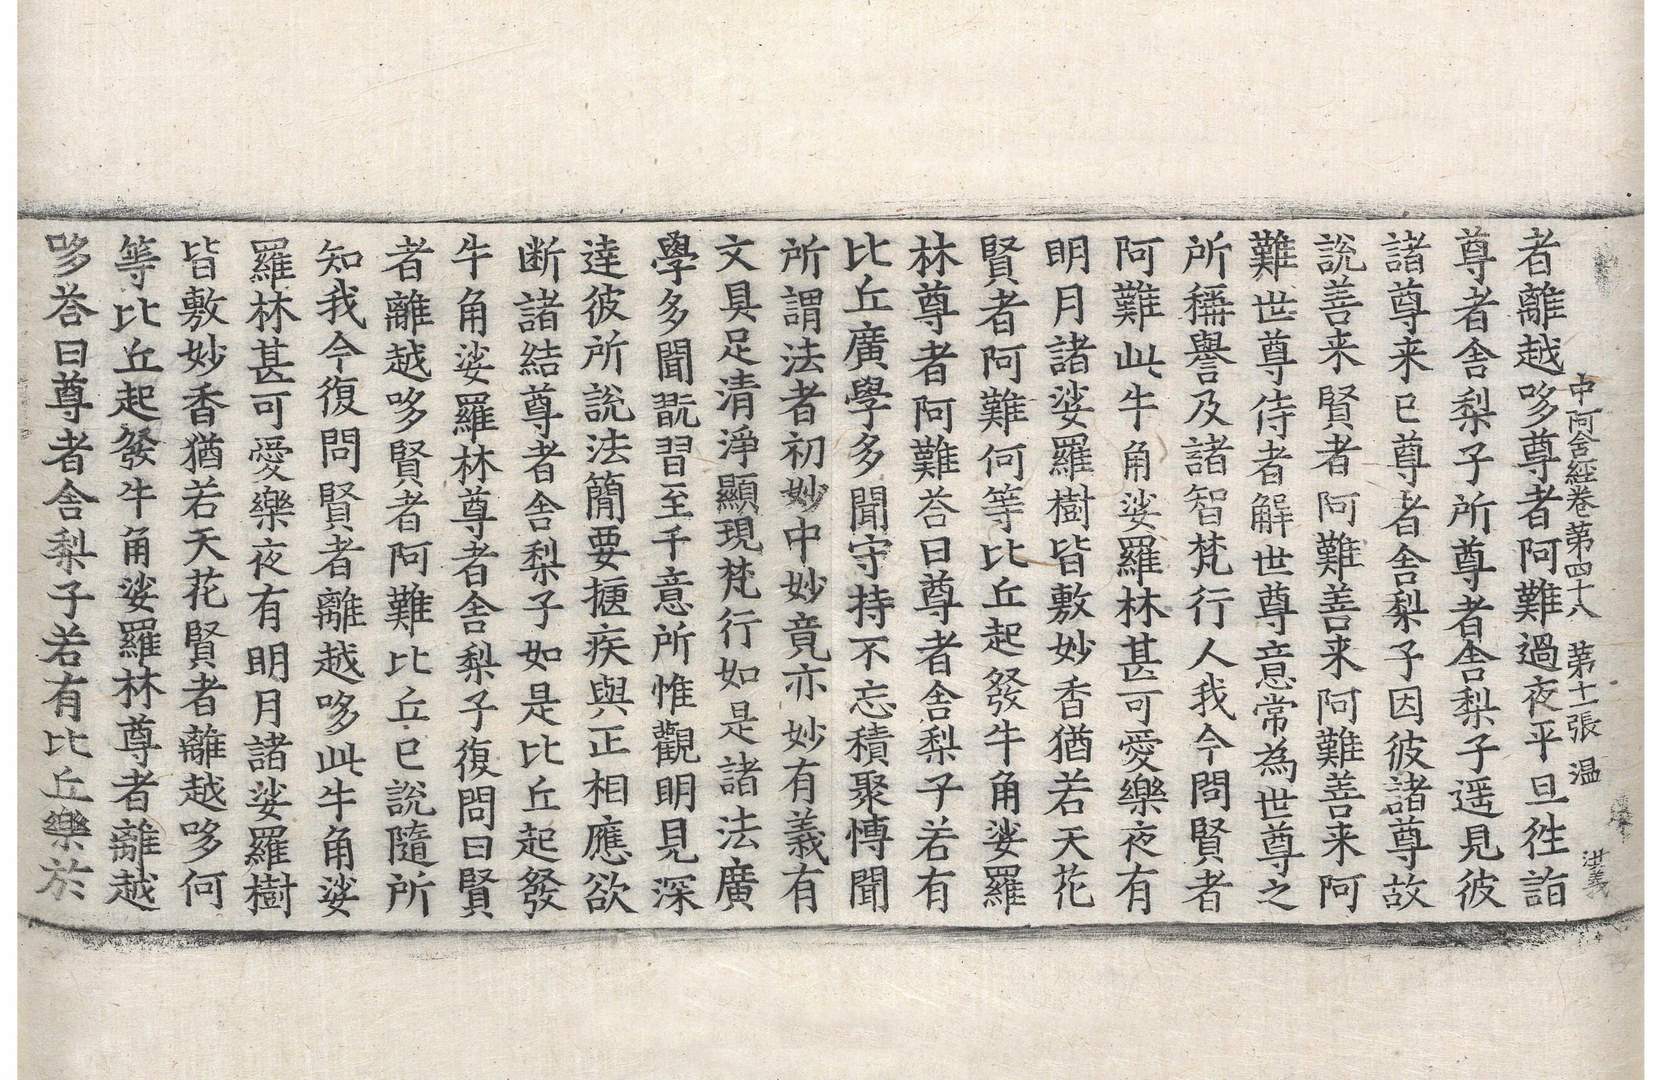 中阿含經卷第四十八　第十一張　温
洪義
者離越哆尊者阿難過夜平旦徃詣
尊者舍梨子所尊者舍梨子遥見彼
諸尊来已尊者舍梨子因彼諸尊故
說善来賢者阿難善来阿難善来阿
難世尊侍者解世尊意常為世尊之
所稱譽及諸智梵行人我今問賢者
阿難此牛角娑羅林甚可愛樂夜有
明月諸娑羅樹皆敷妙香猶若天花
賢者阿難何等比丘起發牛角娑羅
林尊者阿難荅曰尊者舍梨子若有
比丘廣學多聞守持不忘積聚慱聞
所謂法者初妙中妙竟亦妙有義有
文具足清淨顯現梵行如是諸法廣
學多聞翫習至千意所惟觀明見深
達彼所說法簡要揵疾與正相應欲
断諸結尊者舍梨子如是比丘起發
牛角娑羅林尊者舍梨子復問曰賢
者離越哆賢者阿難比丘已說隨所
知我今復問賢者離越哆此牛角娑
羅林甚可愛樂夜有明月諸娑羅樹
皆敷妙香猶若天花賢者離越哆何
等比丘起發牛角娑羅林尊者離越
哆荅曰尊者舍梨子若有比丘樂於